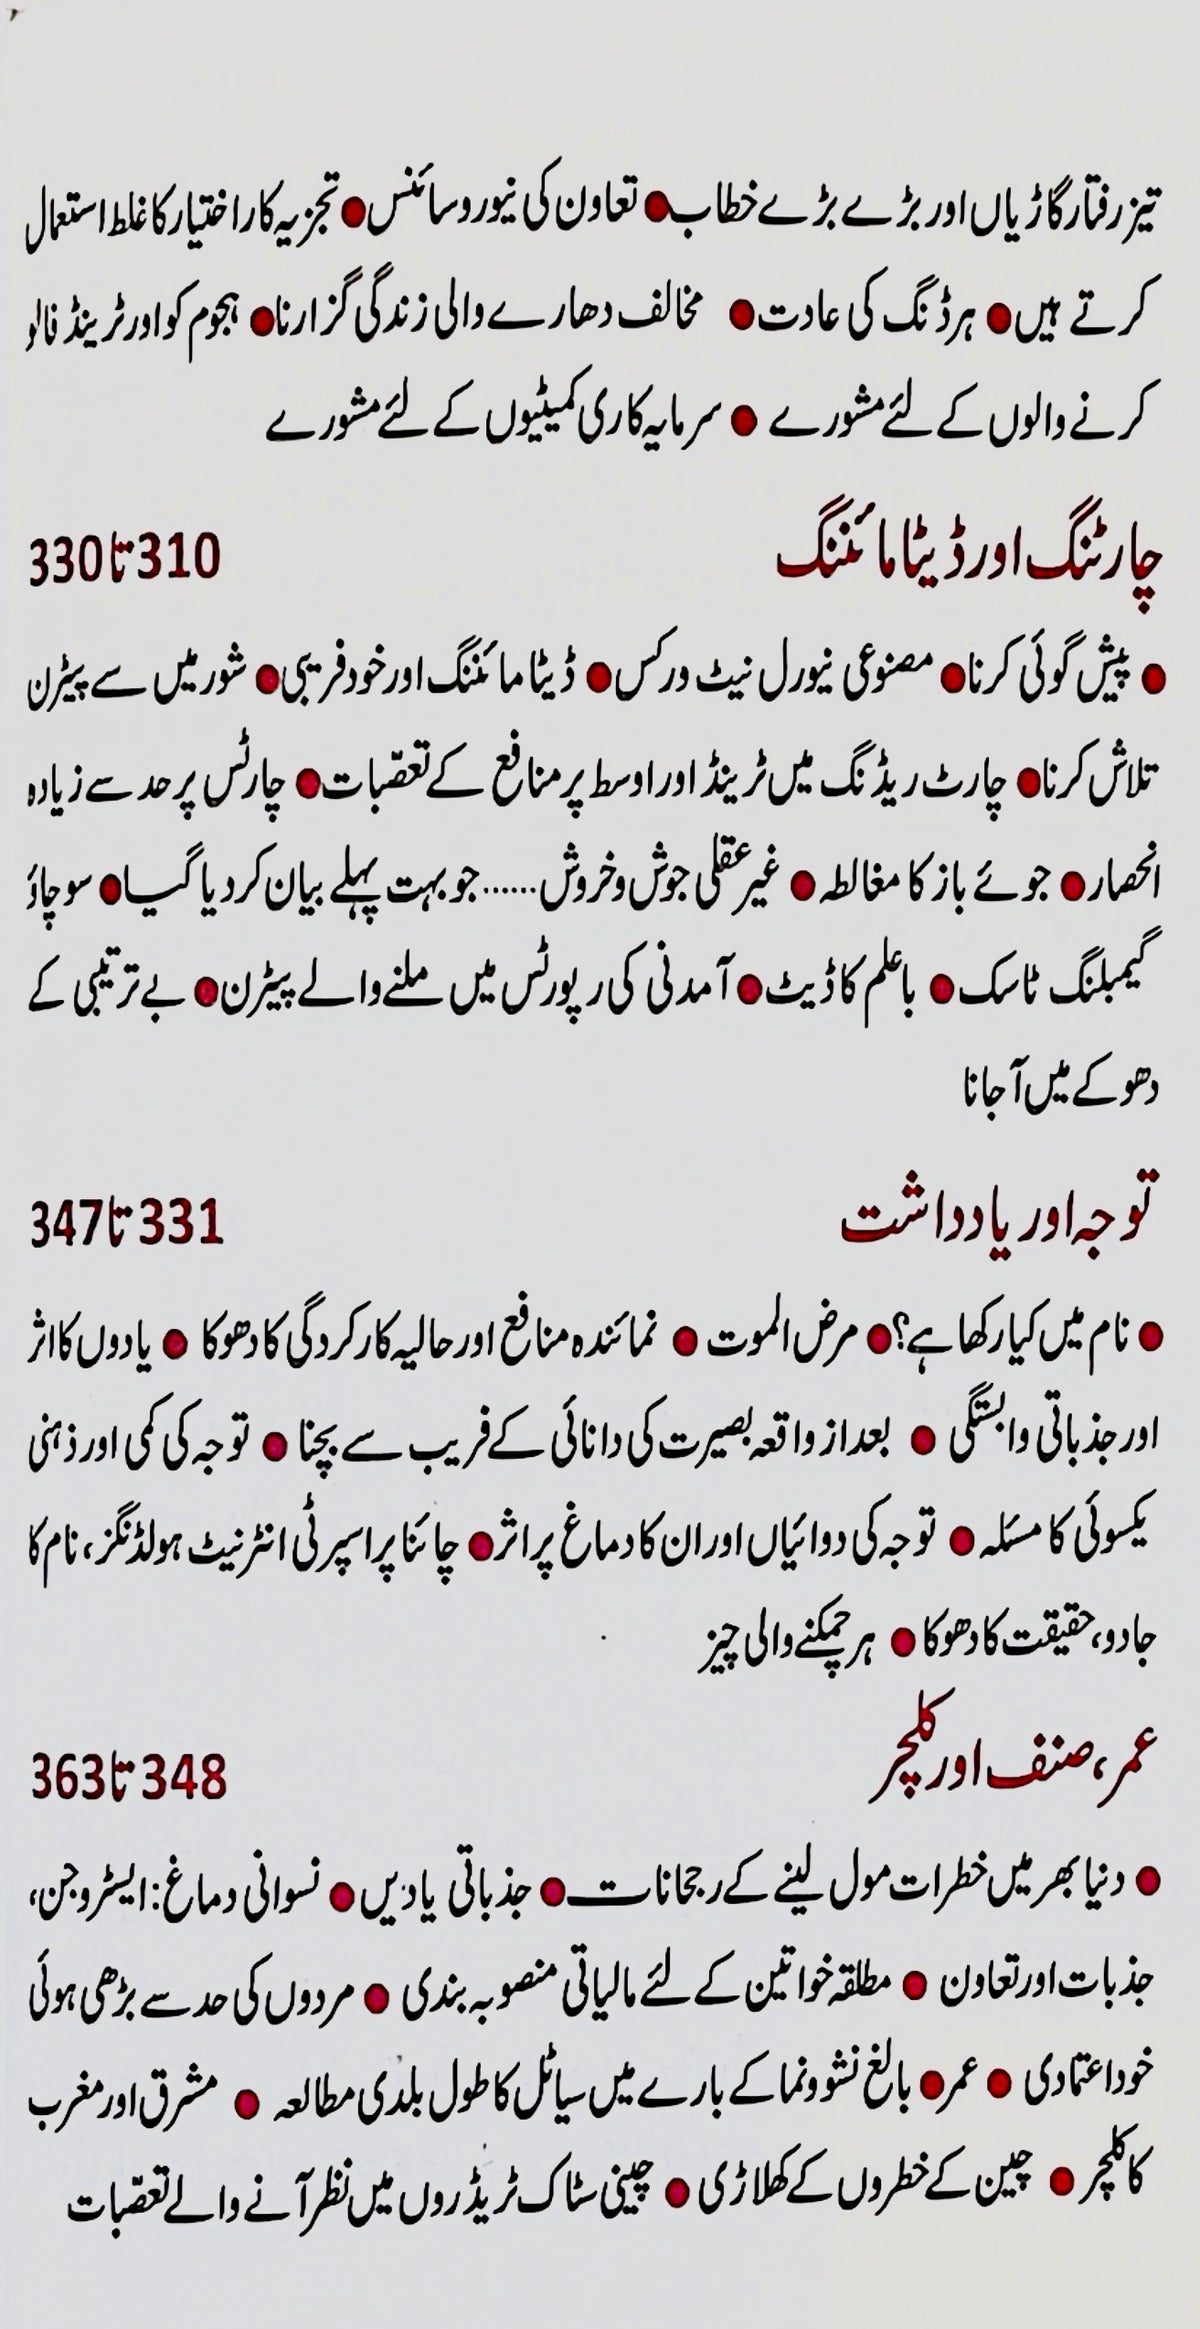 تیز رفتار گاڑیاں اور بڑے بڑے خطاب ● تعاون کی نیوروسائنس ● تجزیہ کار اختیار کا غلط استعمال
کرتے ہیں ● ہرڈنگ کی عادت ● مخالف دھارے والی زندگی گزارنا ● ہجوم کو اور ٹرینڈ فالو
کرنے والوں کے لئے مشورے ● سرمایہ کاری کمیٹیوں کے لئے مشورے
چارٹنگ اور ڈیٹا مائننگ 310 تا 330
● پیش گوئی کرنا ● مصنوعی نیورل نیٹ ورکس ● ڈیٹا مائننگ اور خود فریبی ● شور میں سے پیٹرن
تلاش کرنا ● چارٹ ریڈنگ میں ٹرینڈ اور اوسط پر منافع کے تعصّبات ● چارٹس پر حد سے زیادہ
انحصار ● جوئے باز کا مغالطہ ● غیر عقلی جوش و خروش...... جو بہت پہلے بیان کر دیا گیا ● سوچاؤ
گیمبلنگ ٹاسک ● باعلم کا ڈیٹ ● آمدنی کی رپورٹس میں ملنے والے پیٹرن ● بے ترتیبی کے
دھوکے میں آ جانا
توجہ اور یادداشت 331 تا 347
● نام میں کیا رکھا ہے؟ ● مرض الموت ● نمائندہ منافع اور حالیہ کارکردگی کا دھوکا ● یادوں کا اثر
اور جذباتی وابستگی ● بعد از واقعہ بصیرت کی دانائی کے فریب سے بچنا ● توجہ کی کمی اور ذہنی
یکسوئی کا مسئلہ ● توجہ کی دوائیاں اور ان کا دماغ پر اثر ● چائنا پراسپرٹی انٹرنیٹ ہولڈنگز، نام کا
جادو، حقیقت کا دھوکا ● ہر چمکنے والی چیز
عمر، صنف اور کلچر 348 تا 363
● دنیا بھر میں خطرات مول لینے کے رجحانات ● جذباتی یادیں ● نسوانی دماغ: ایسٹروجن،
جذبات اور تعاون ● مطلقہ خواتین کے لئے مالیاتی منصوبہ بندی ● مردوں کی حد سے بڑھی ہوئی
خود اعتمادی ● عمر ● بالغ نشوونما کے بارے میں سیاٹل کا طول بلدی مطالعہ ● مشرق اور مغرب
کا کلچر ● چین کے خطروں کے کھلاڑی ● چینی سٹاک ٹریڈروں میں نظر آنے والے تعصّبات